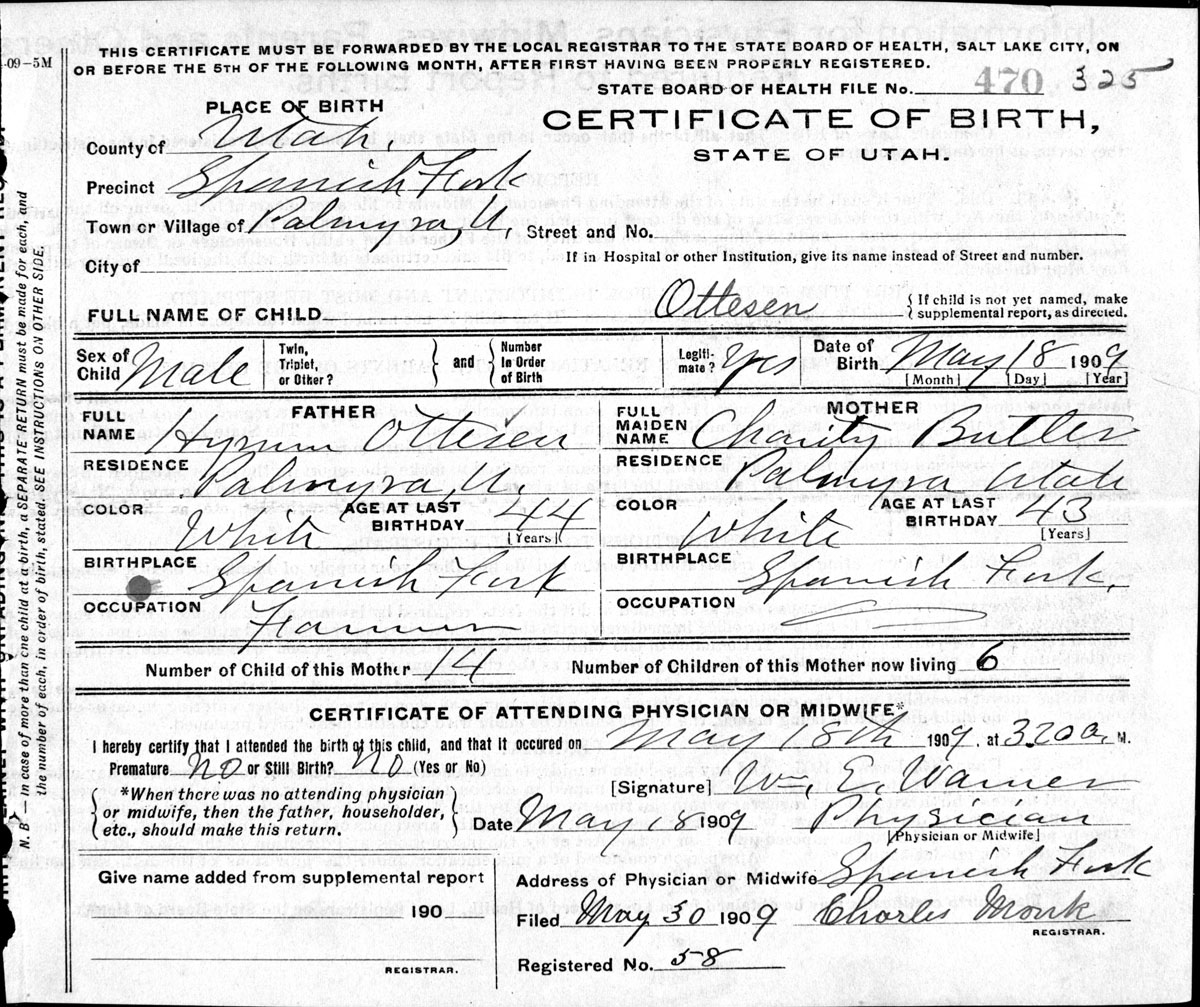 THIS CERTIFICATE MUST BE FORWARDED BY THE LOCAL REGISTRAR TO THE STATE BOARD OF HEALTH, SALT LAKE CITY, ON
-09-5M
OR BEFORE THE 5TH OF THE FOLLOWING MONTH, AFTER FIRST HAVING BEEN PROPERLY REGISTERED.
STATE BOARD OF HEALTH FILE No. 470 325
PLACE OF BIRTH
CERTIFICATE OF BIRTH,
STATE OF UTAH.
County of Utah,
Precinct Spanish Fork
Town or Village of Palmyra, U, Street and No.
City of If in Hospital or other Institution, give its name instead of Street and number.
FULL NAME OF CHILD Ottesen {If child is not yet named, make
supplemental report, as directed.
Sex of Child Male
Twin, Triplet, or Other? } and { Number in Order of Birth
Legiti-mate? Yes
Date of Birth May 18 1909
[Month] [Day] [Year]
FATHER
FULL NAME Hyrum Ottesen
RESIDENCE Palmyra U.
COLOR White AGE AT LAST BIRTHDAY 44
[Years]
BIRTHPLACE Spanish Fork
OCCUPATION Farmer
MOTHER
FULL MAIDEN NAME Charity Butler
RESIDENCE Palmyra Utah
COLOR White AGE AT LAST BIRTHDAY 43
[Years]
BIRTHPLACE Spanish Fork
OCCUPATION
Number of Child of this Mother 14 Number of Children of this Mother now living 6
CERTIFICATE OF ATTENDING PHYSICIAN OR MIDWIFE*
I hereby certify that I attended the birth of this child, and that it occured on May 18th 1909, at 3.20 a. M.
Premature No or Still Birth? No (Yes or No)
{*When there was no attending physician
or midwife, then the father, householder,
etc., should make this return.}
[Signature] Wm. E. Warner
Date May 18 1909 Physician
[Physician or Midwife]
Give name added from supplemental report
190
REGISTRAR.
Address of Physician or Midwife Spanish Fork
Filed May 30 1909 Charles Monk
REGISTRAR.
Registered No. 58
N. B.—in case of more than one child at a birth, a SEPARATE RETURN must be made for each, and
the number of each, in order of birth, stated. SEE INSTRUCTIONS ON OTHER SIDE.